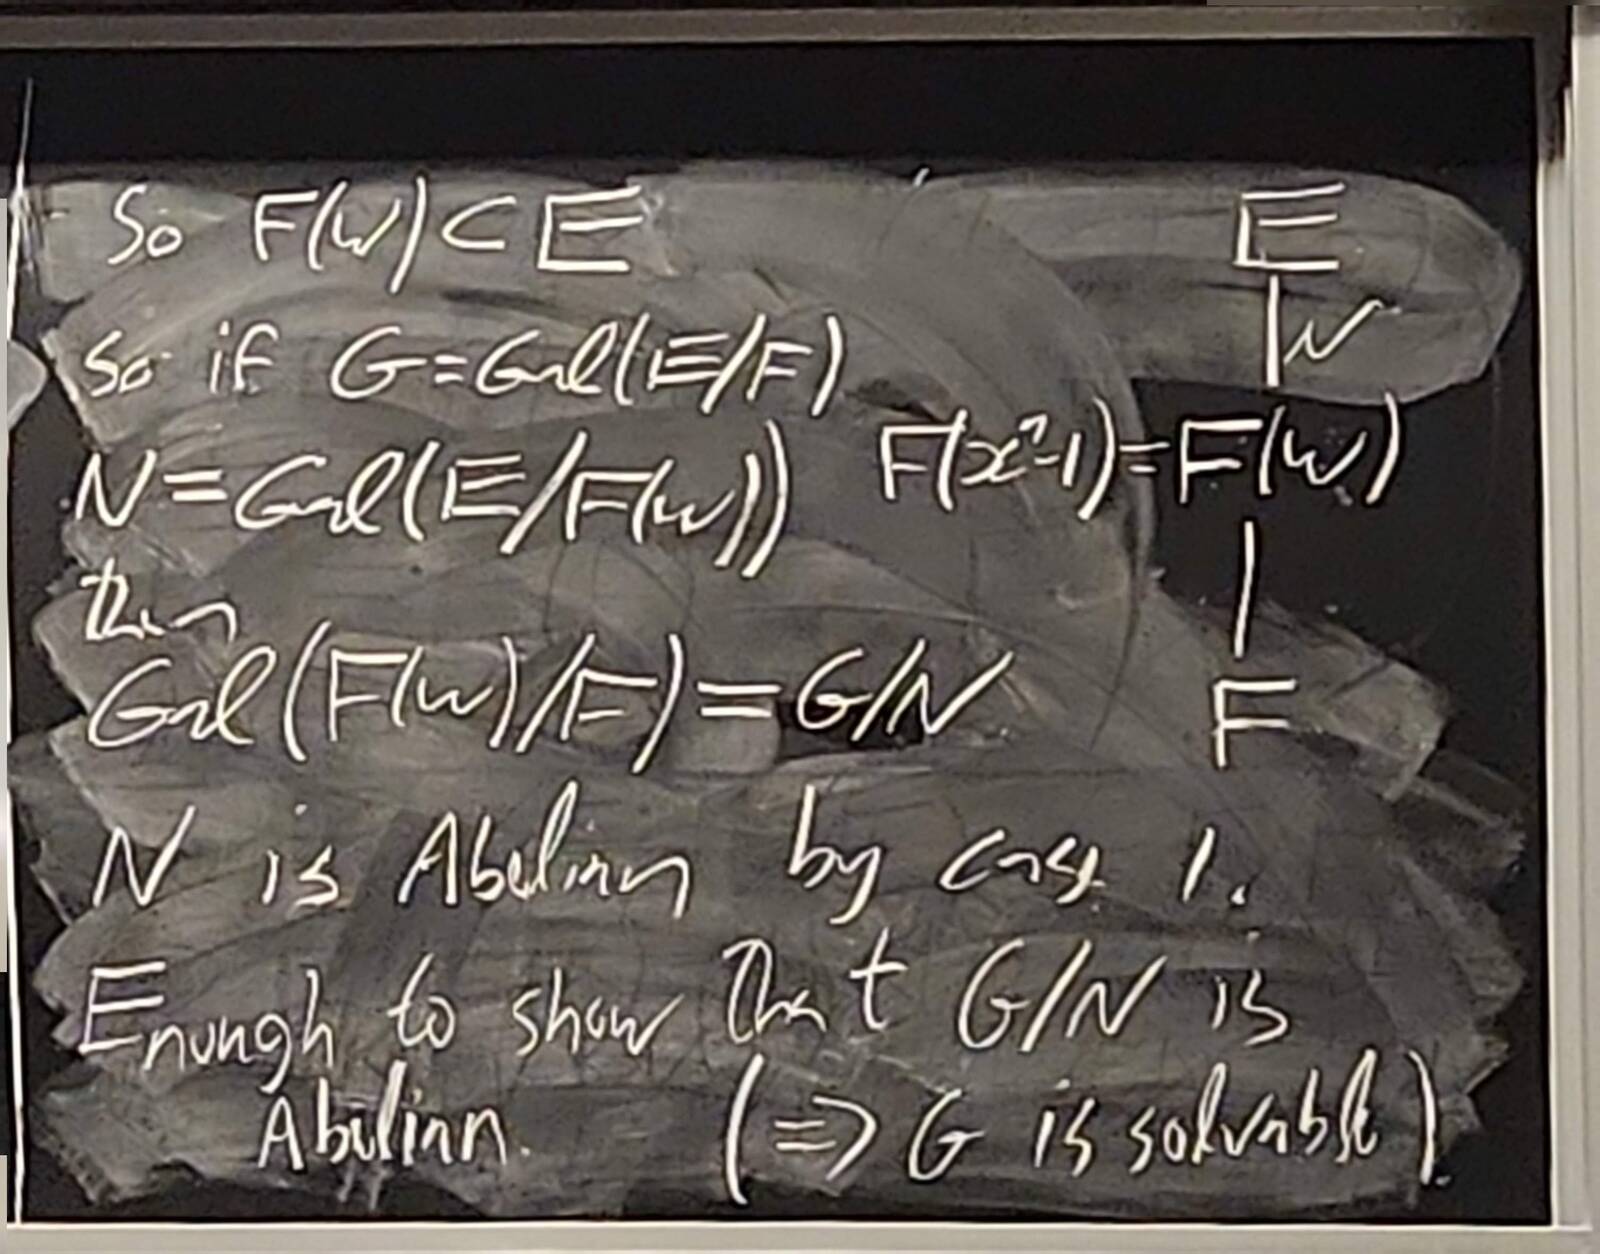 So F(w) ⊂ E
So if G=Gal(E/F)
N=Gal(E/F(w))
then
Gal(F(w)/F)=G/N
N is Abelian by case 1.
Enough to show that G/N is
Abelian. (⇒ G is solvable).
E
N
F(xⁿ-1)=F(w)
F